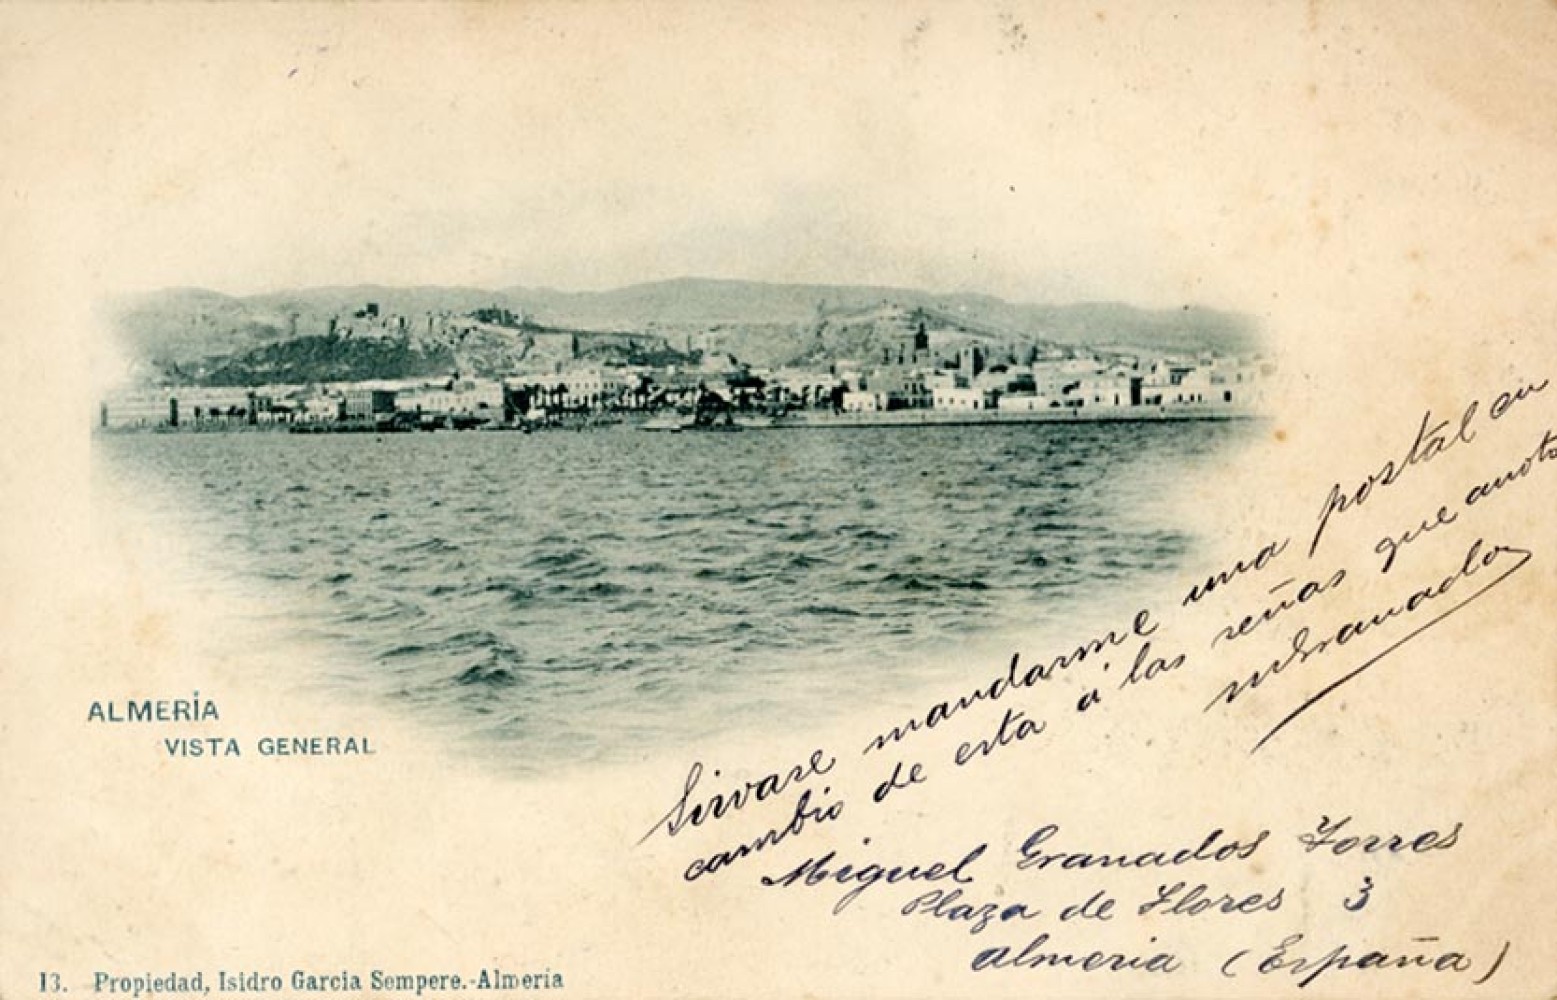 ALMERÍA
VISTA GENERAL
Sirvase mandarme una postal en
cambio de esta á las señas que anoto
MGranados
Miguel Granados Torres
Plaza de Flores 3
Almeria (España)
13. Propiedad, Isidro Garcia Sempere.-Almería